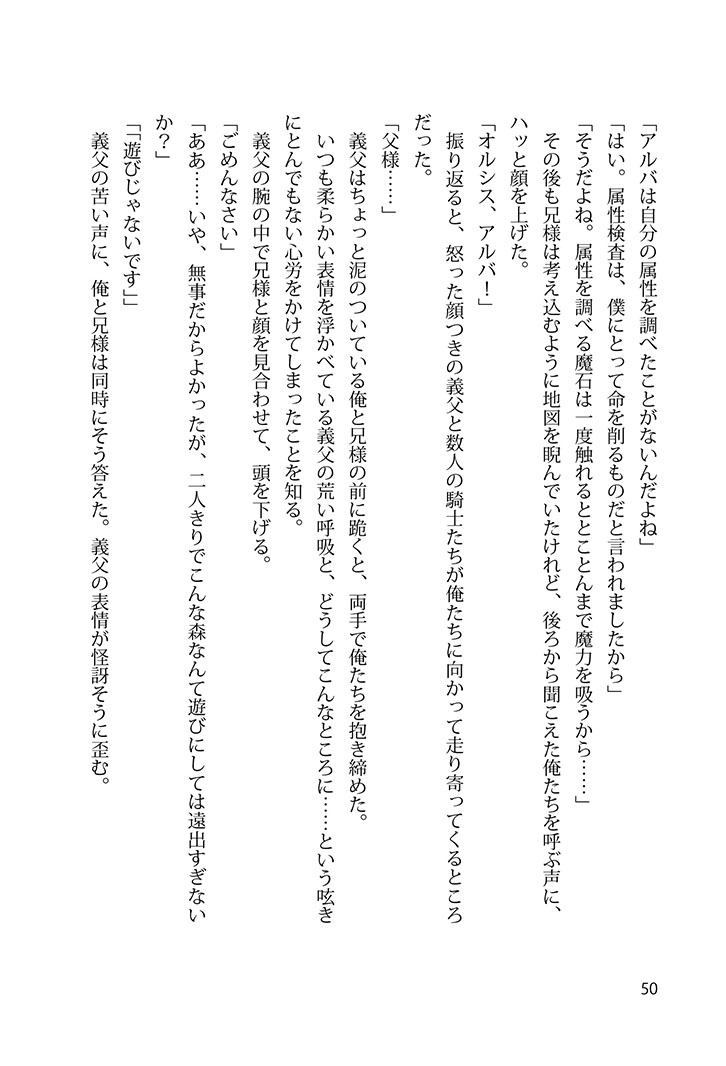 「アルバは自分の属性を調べたことがないんだよね」
「はい。属性検査は、僕にとって命を削るものだと言われましたから」
「そうだよね。属性を調べる魔石は一度触れるととことんまで魔力を吸うから……」
　その後も兄様は考え込むように地図を睨んでいたけれど、後ろから聞こえた俺たちを呼ぶ声に、
ハッと顔を上げた。
「オルシス、アルバ！」
　振り返ると、怒った顔つきの義父と数人の騎士たちが俺たちに向かって走り寄ってくるところ
だった。
「父様……」
　義父はちょっと泥のついている俺と兄様の前に跪くと、両手で俺たちを抱き締めた。
　いつも柔らかい表情を浮かべている義父の荒い呼吸と、どうしてこんなところに……という呟き
にとんでもない心労をかけてしまったことを知る。
　義父の腕の中で兄様と顔を見合わせて、頭を下げる。
「ごめんなさい」
「ああ……いや、無事だからよかったが、二人きりでこんな森なんて遊びにしては遠出すぎない
か？」
「「遊びじゃないです」」
　義父の苦い声に、俺と兄様は同時にそう答えた。義父の表情が怪訝そうに歪む。
50